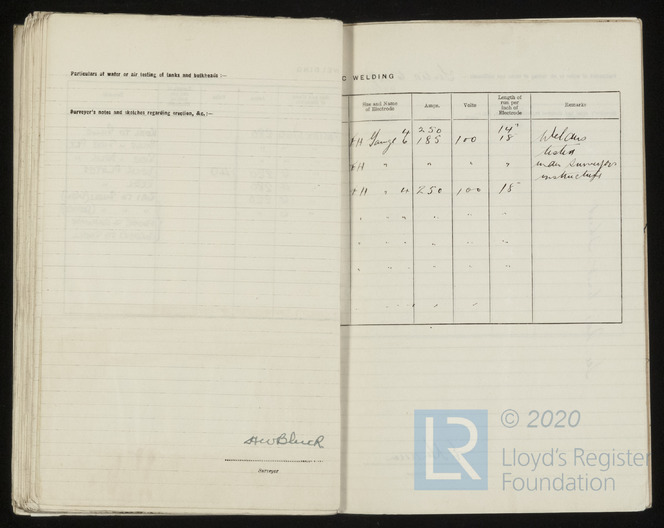 Particulars of water or air testing of tanks and bulkheads :—
Surveyor's notes and sketches regarding erection, &c. :—
HWBluck
Surveyor
C WELDING
Size and Name of Electrode
Amps.
Volts
Length of run per inch of Electrode
Remarks
H Gauge 4 250 14"
6 185 100 18 Welders
tested
H " " " " under Surveyors
instructions
H " 4 250 100 18"
" " " " "
" " " " "
" " " " "
" " "
LR
© 2020
Lloyd's Register
Foundation